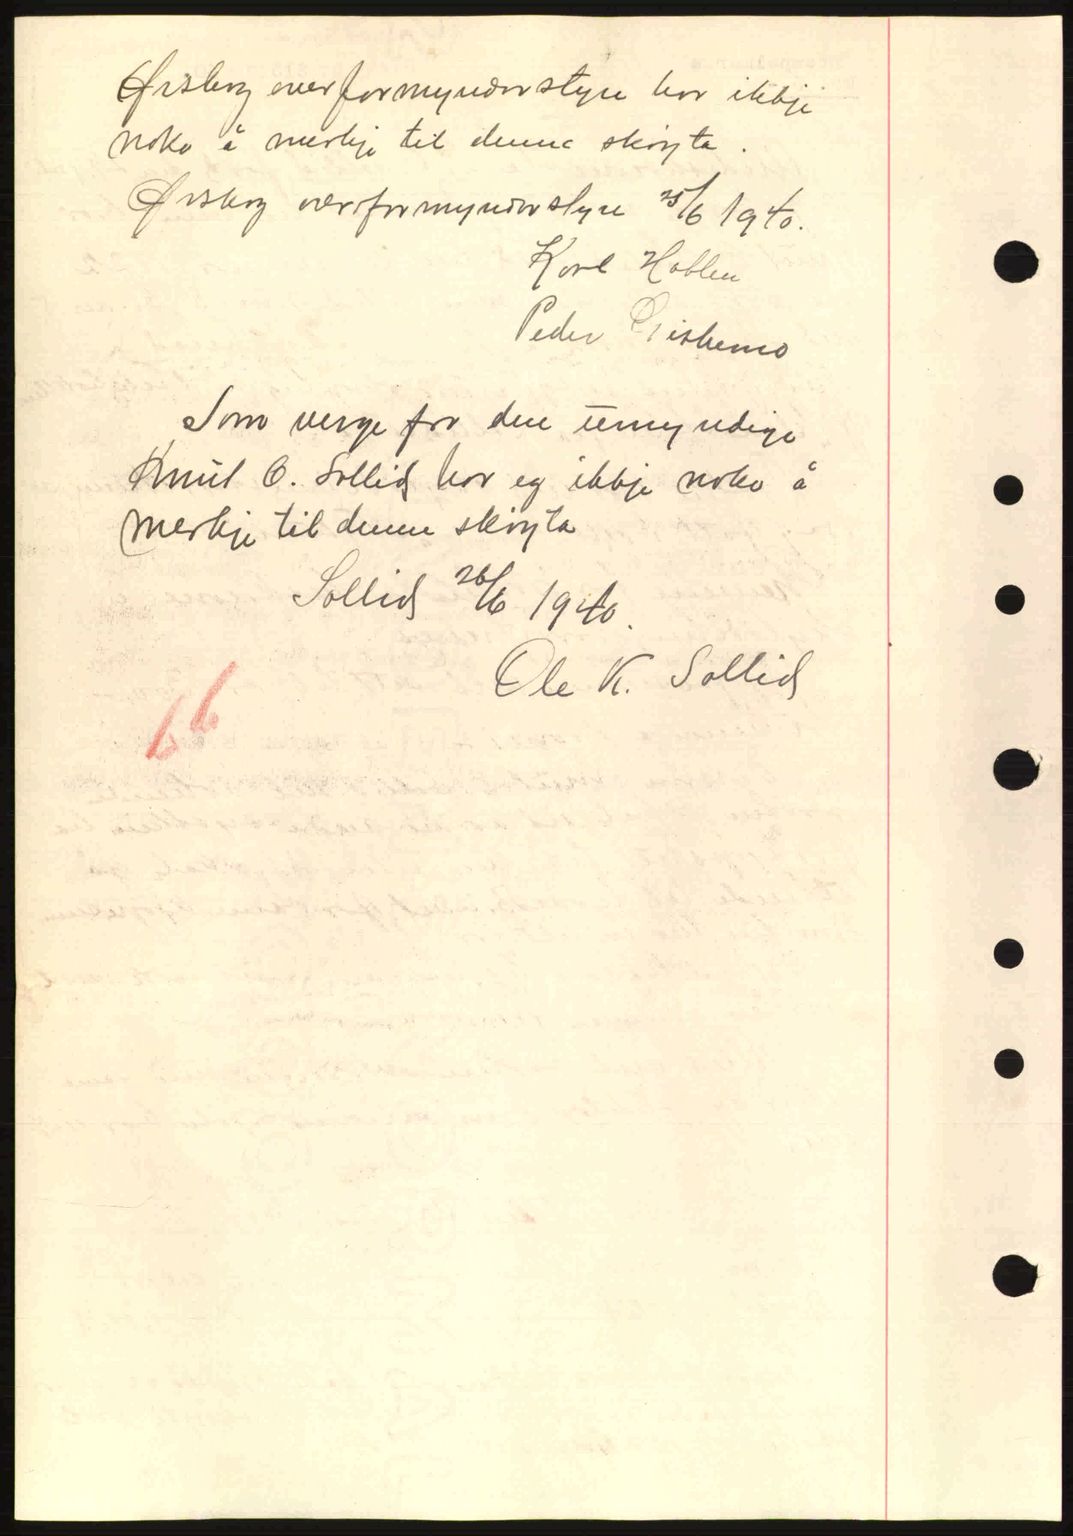 Ørskog overformynderstyre har ikkje
noko å merkje til denne skøyta.
Ørskog overformynderstyre 25/6 1940.
Karl Hablen
Peder
Som verge for den umyndige
Knut O. Sollid har eg ikkje noko å
merkje til denne skøyta
Sollid 26/6 1940.
Ole K. Sollid
66